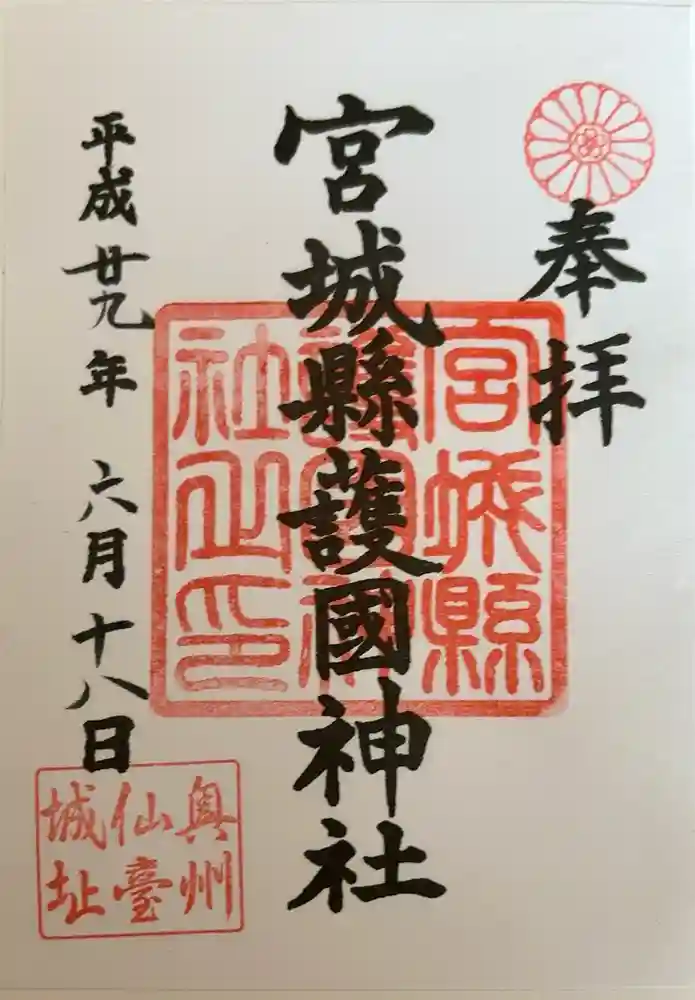 奉拝
宮城縣護國神社
宮城縣
護國神
社之印
平成廿九年 六月十八日
奥州
仙臺
城址